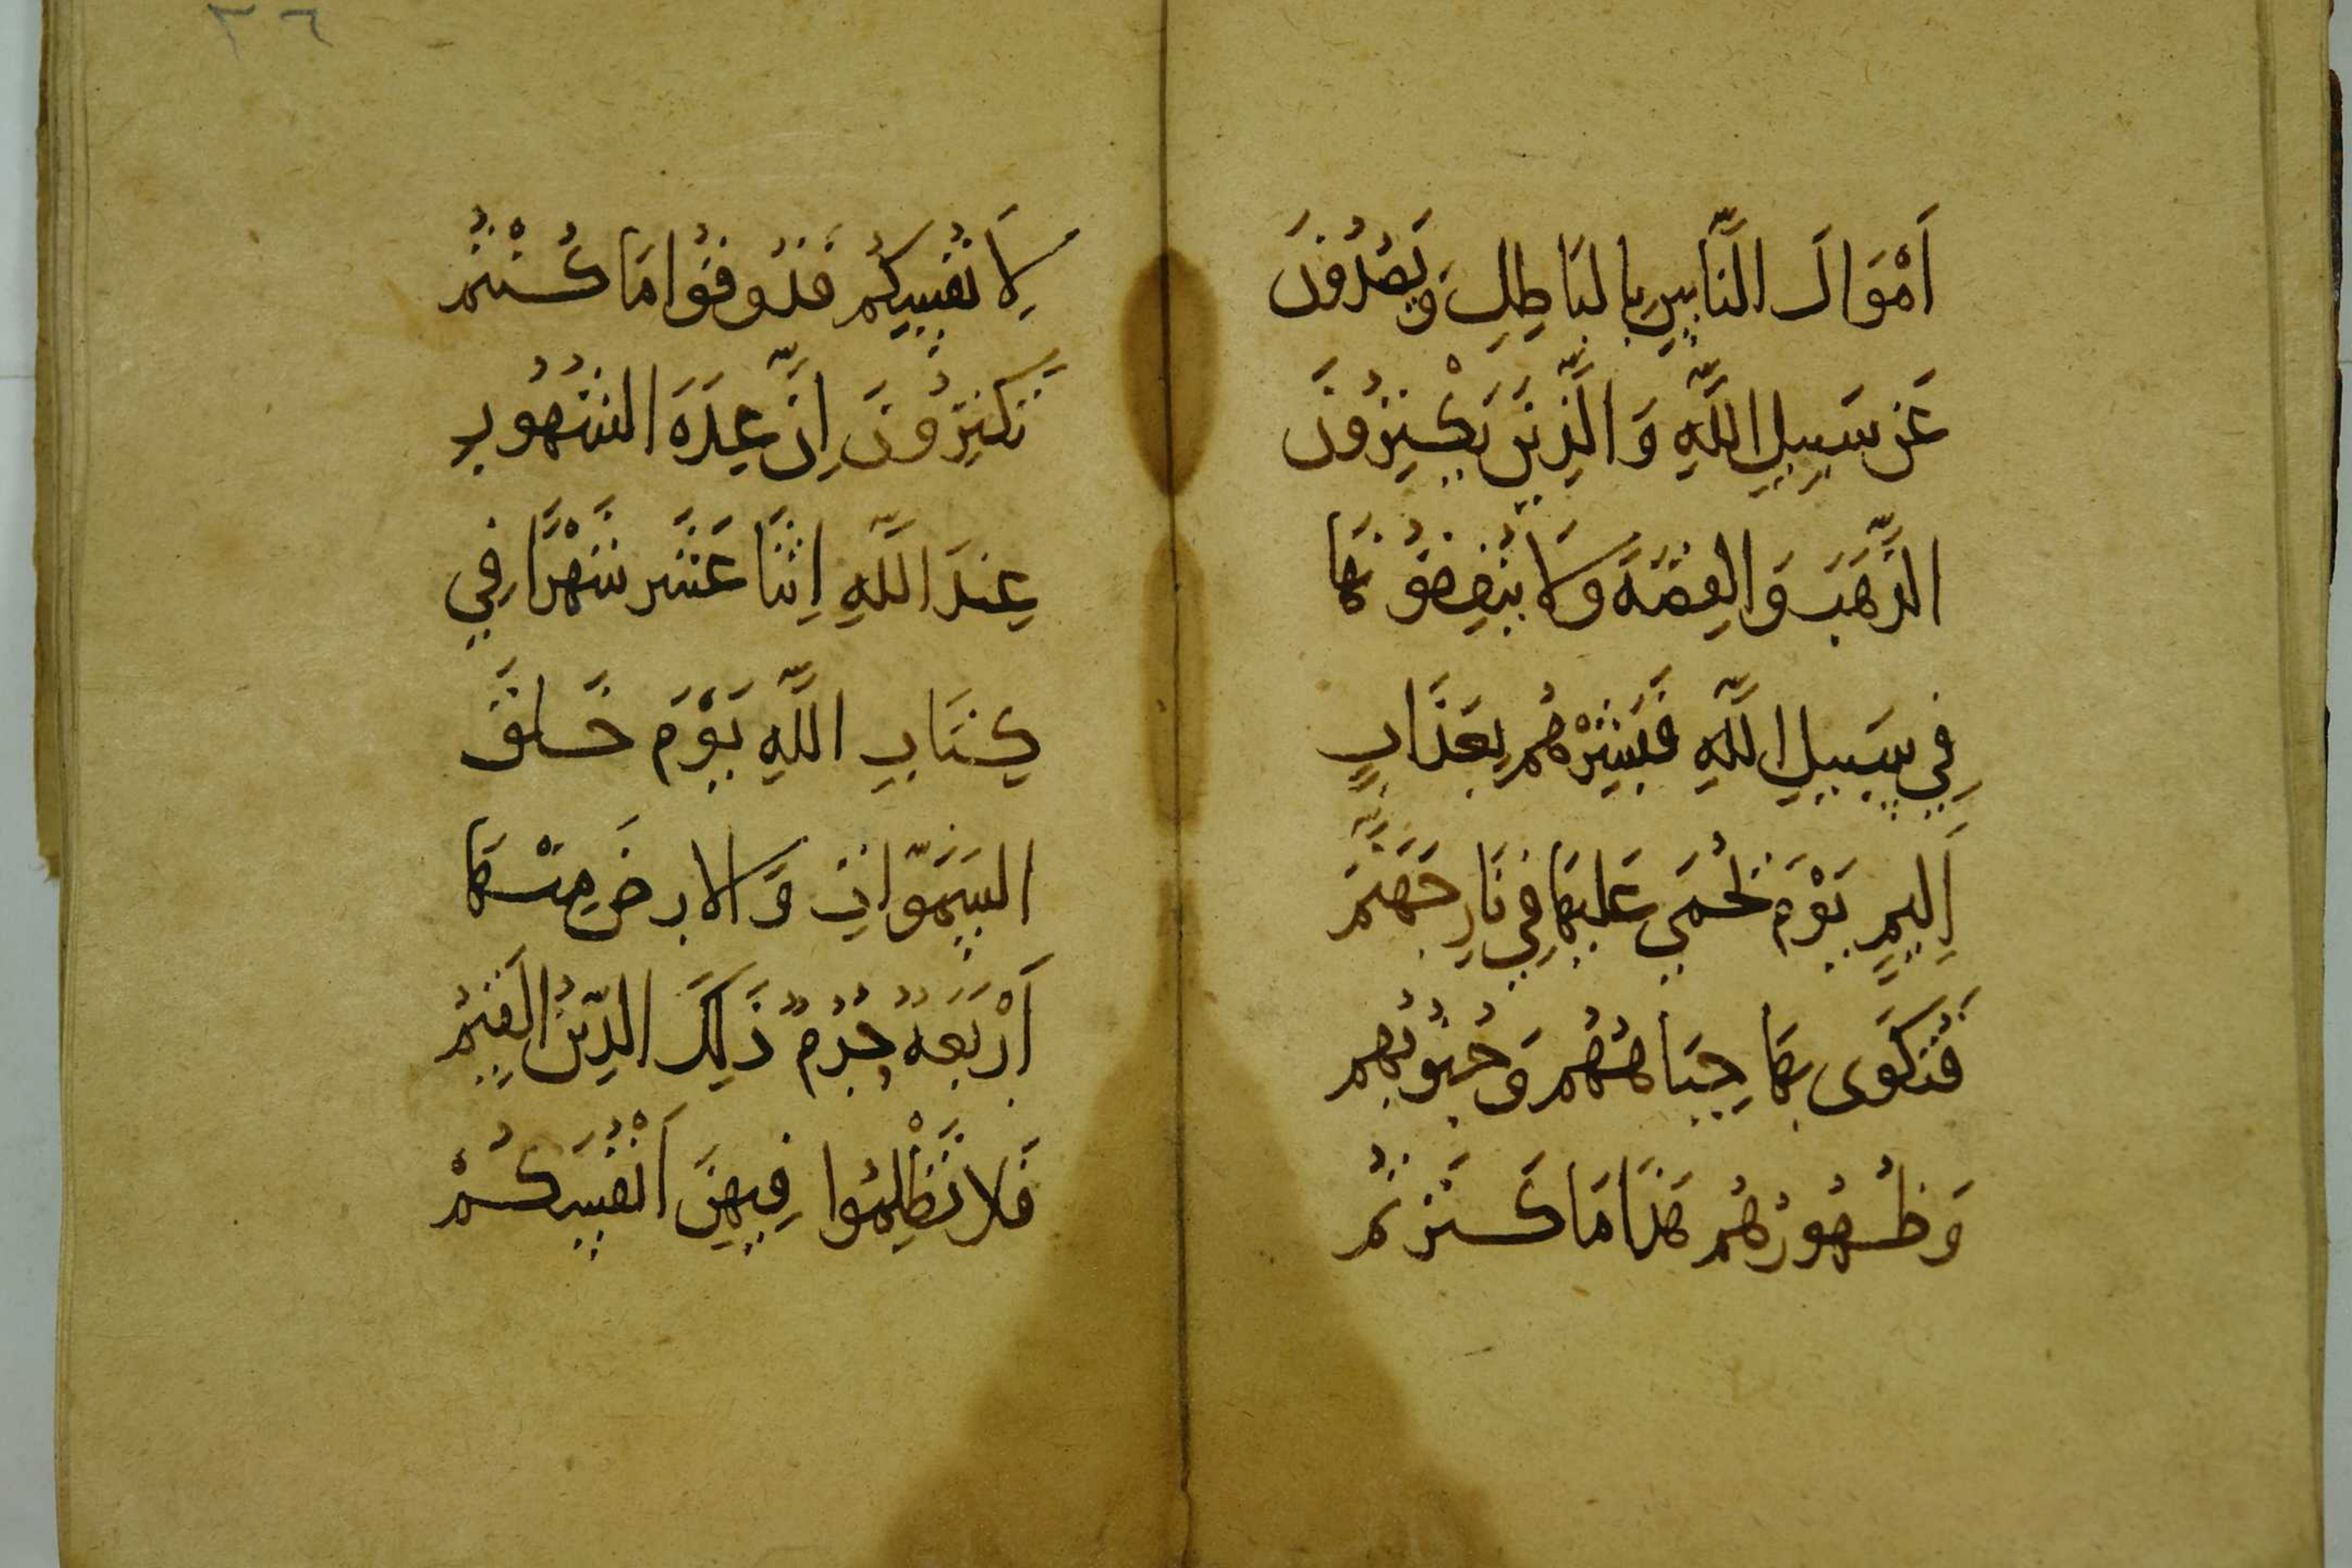 ٣٦
اَمْوَالَ النَّاسِ بِالبَاطِلِ وَيَصُدُّونَ
عَن سَبِيلِ اللَّهِ وَالَّذِينَ يَكْنِزُونَ
الذَّهَبَ وَالفِضَّةَ وَلَا يُنفِقُونَهَا
فِي سَبِيلِ اللَّهِ فَبَشِّرْهُم بِعَذَابٍ
اَلِيمٍ يَوْمَ يُحْمَى عَلَيهَا فِي نَارِ جَهَنَّمَ
فَتُكْوَى بِهَا جِبَاهُهُم وَجُنُوبُهُم
وَظُهُورُهُم هَذَا مَا كَنَزتُم
لِاَنفُسِكُم فَذُوقُوا مَا كُنْتُم
تَكنِزُونَ اِنَّ عِدَةَ الشُهُورِ
عِندَ اللَّهِ اِثنَا عَشَرَ شَهْرًا فِي
كِتَابِ اللَّهِ يَوْمَ خَلَقَ
السَمَوَاتِ وَالارضَ مِنْهَا
اَرْبَعَةٌ حُرُمٌ ذَلِكَ الدِّينُ القَيِّمُ
فَلا تَظْلِمُوا فِيهِنَّ اَنْفُسَكُمْ